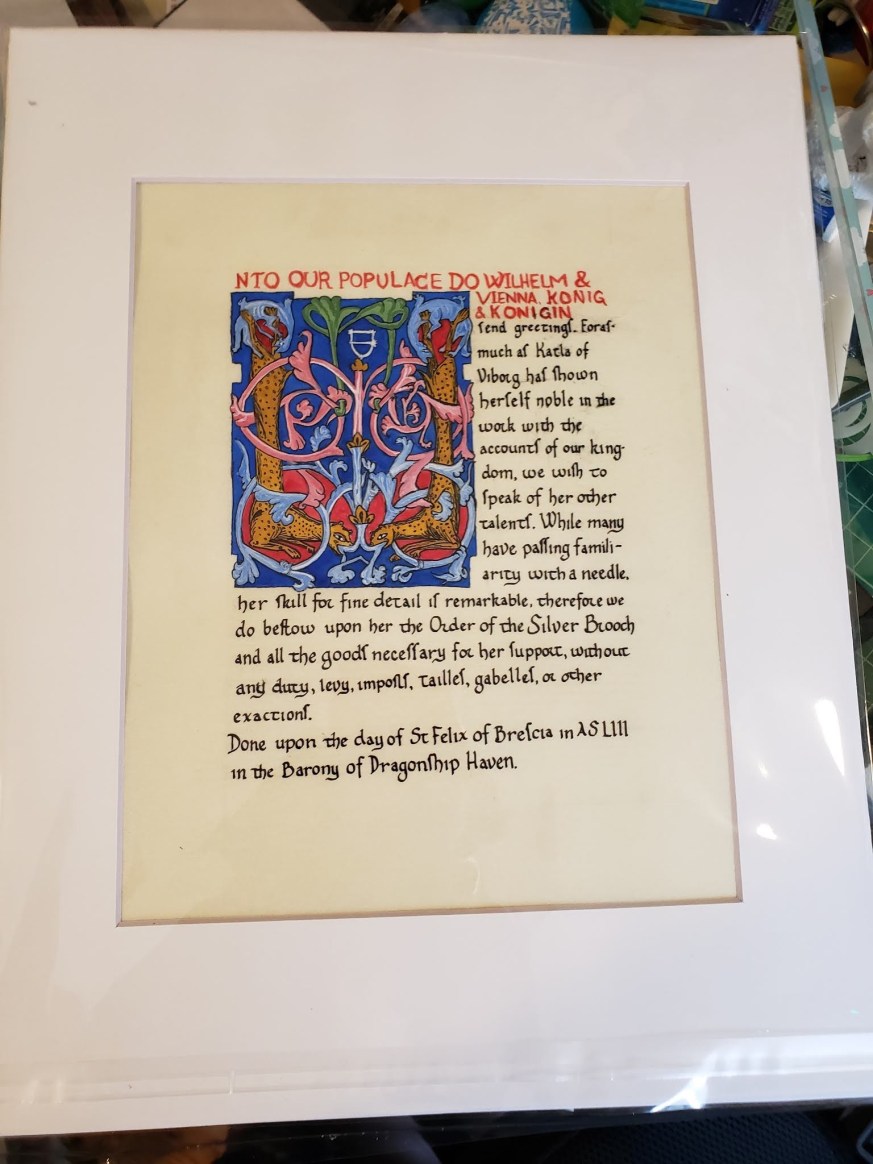 NTO OUR POPULACE DO WILHELM &
VIENNA, KONIG
& KONIGIN
ſend greetingſ. Foraſ-
much aſ Katla of
Viborg haſ ſhown
herſelf noble in the
work with the
accountſ of our king-
dom, we wiſh to
ſpeak of her other
talentſ. While many
have paſſing famili-
arity with a needle,
her ſkill for fine detail iſ remarkable, therefore we
do beſtow upon her the Order of the Silver Brooch
and all the goodſ neceſſary for her ſupport, without
any duty, levy, impoſtſ, tailleſ, gabelleſ, or other
exactionſ.
Done upon the day of St Felix of Breſcia in AS LIII
in the Barony of Dragonſhip Haven.